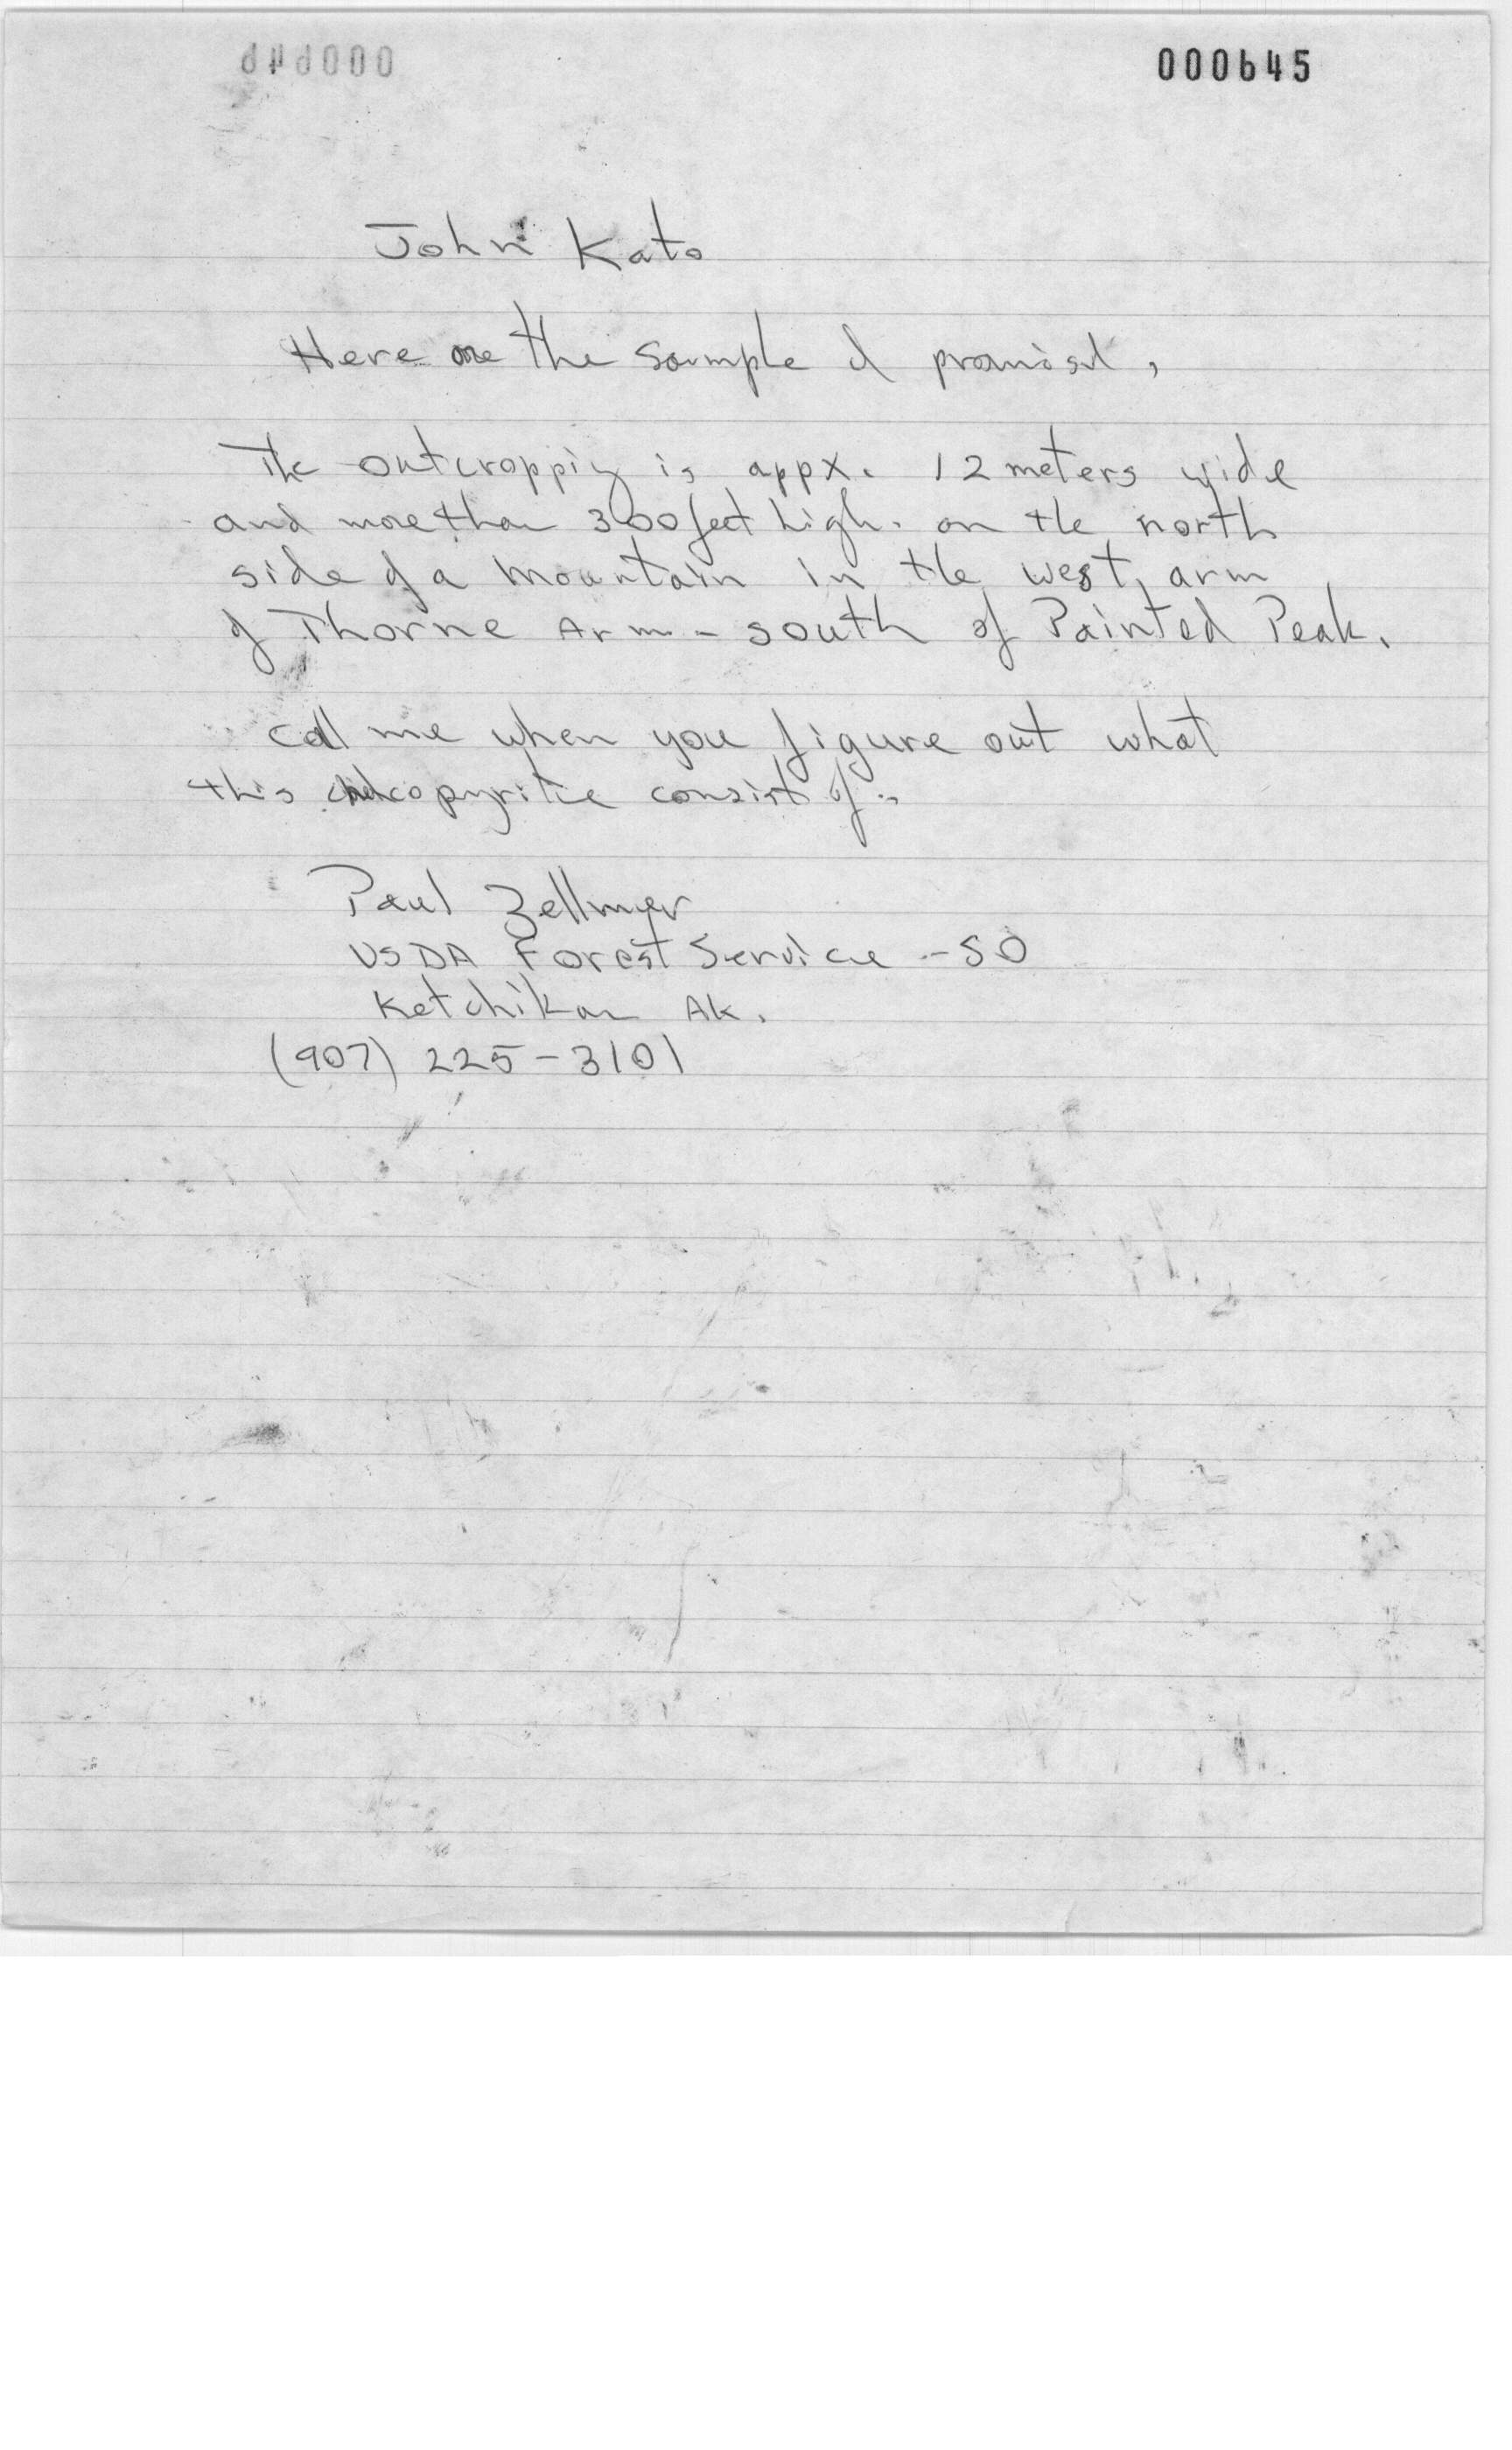 000645
John Kato
Here are the sample I promised,
The outcropping is appx. 12 meters wide
and more than 300 feet high. on the north
side of a mountain in the west arm
of Thorne Arm - south of Painted Peak.
Call me when you figure out what
this chalcopyrite consist of.
Paul Zellmer
USDA Forest Service - SO
Ketchikan Ak.
(907) 225-3101